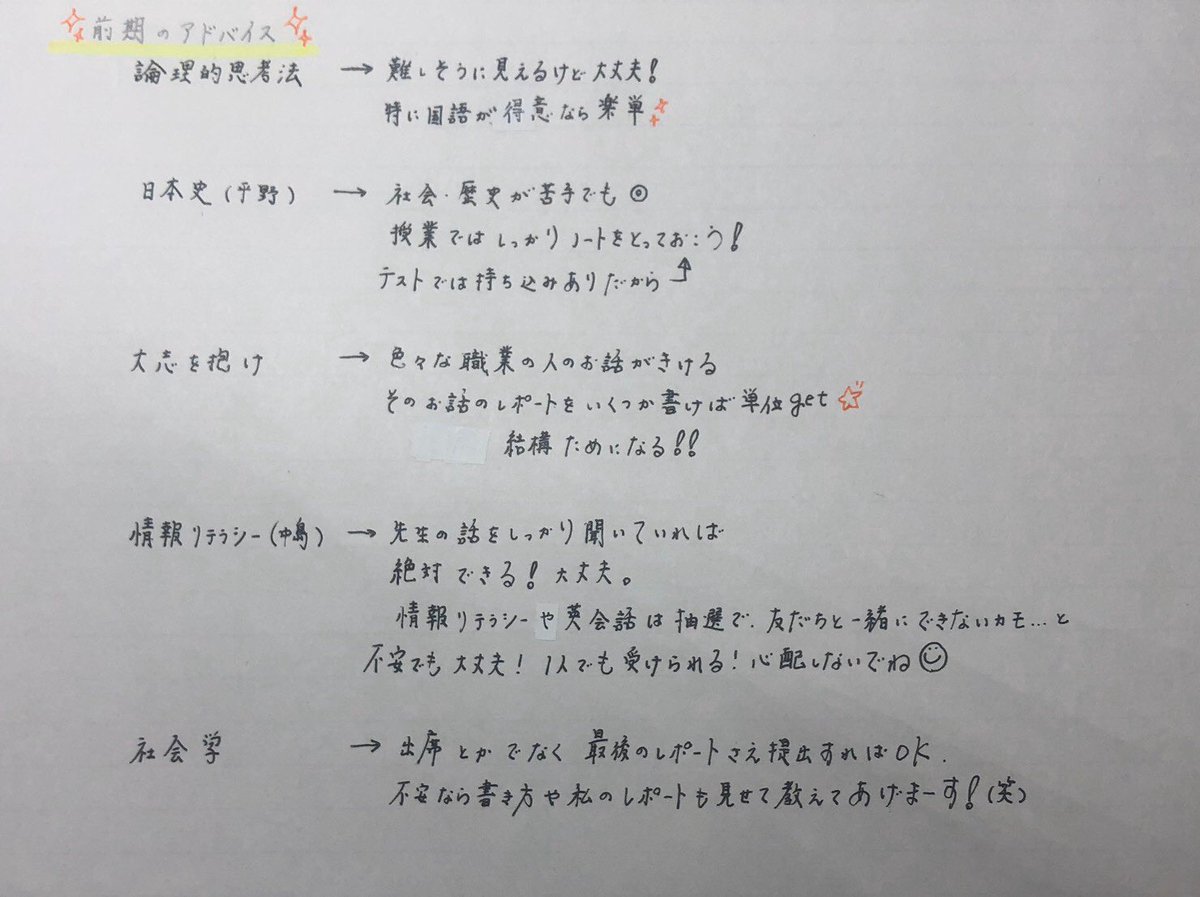 前期のアドバイス
論理的思考法 → 難しそうに見えるけど大丈夫!
特に国語が得意なら楽単
日本史(平野) → 社会・歴史が苦手でも◎
授業ではしっかりノートをとっておこう!
テストでは持ち込みありだから
大志を抱け → 色々な職業の人のお話がきける
そのお話のレポートをいくつか書けば単位get☆
結構ためになる!!
情報リテラシー(中島) → 先生の話をしっかり聞いていれば
絶対できる!大丈夫。
情報リテラシーや英会話は抽選で、友だちと一緒にできないカモ…と
不安でも大丈夫!1人でも受けられる!心配しないでね☺
社会学 → 出席とかでなく最後のレポートさえ提出すればOK.
不安なら書き方や私のレポートも見せて教えてあげまーす!(笑)